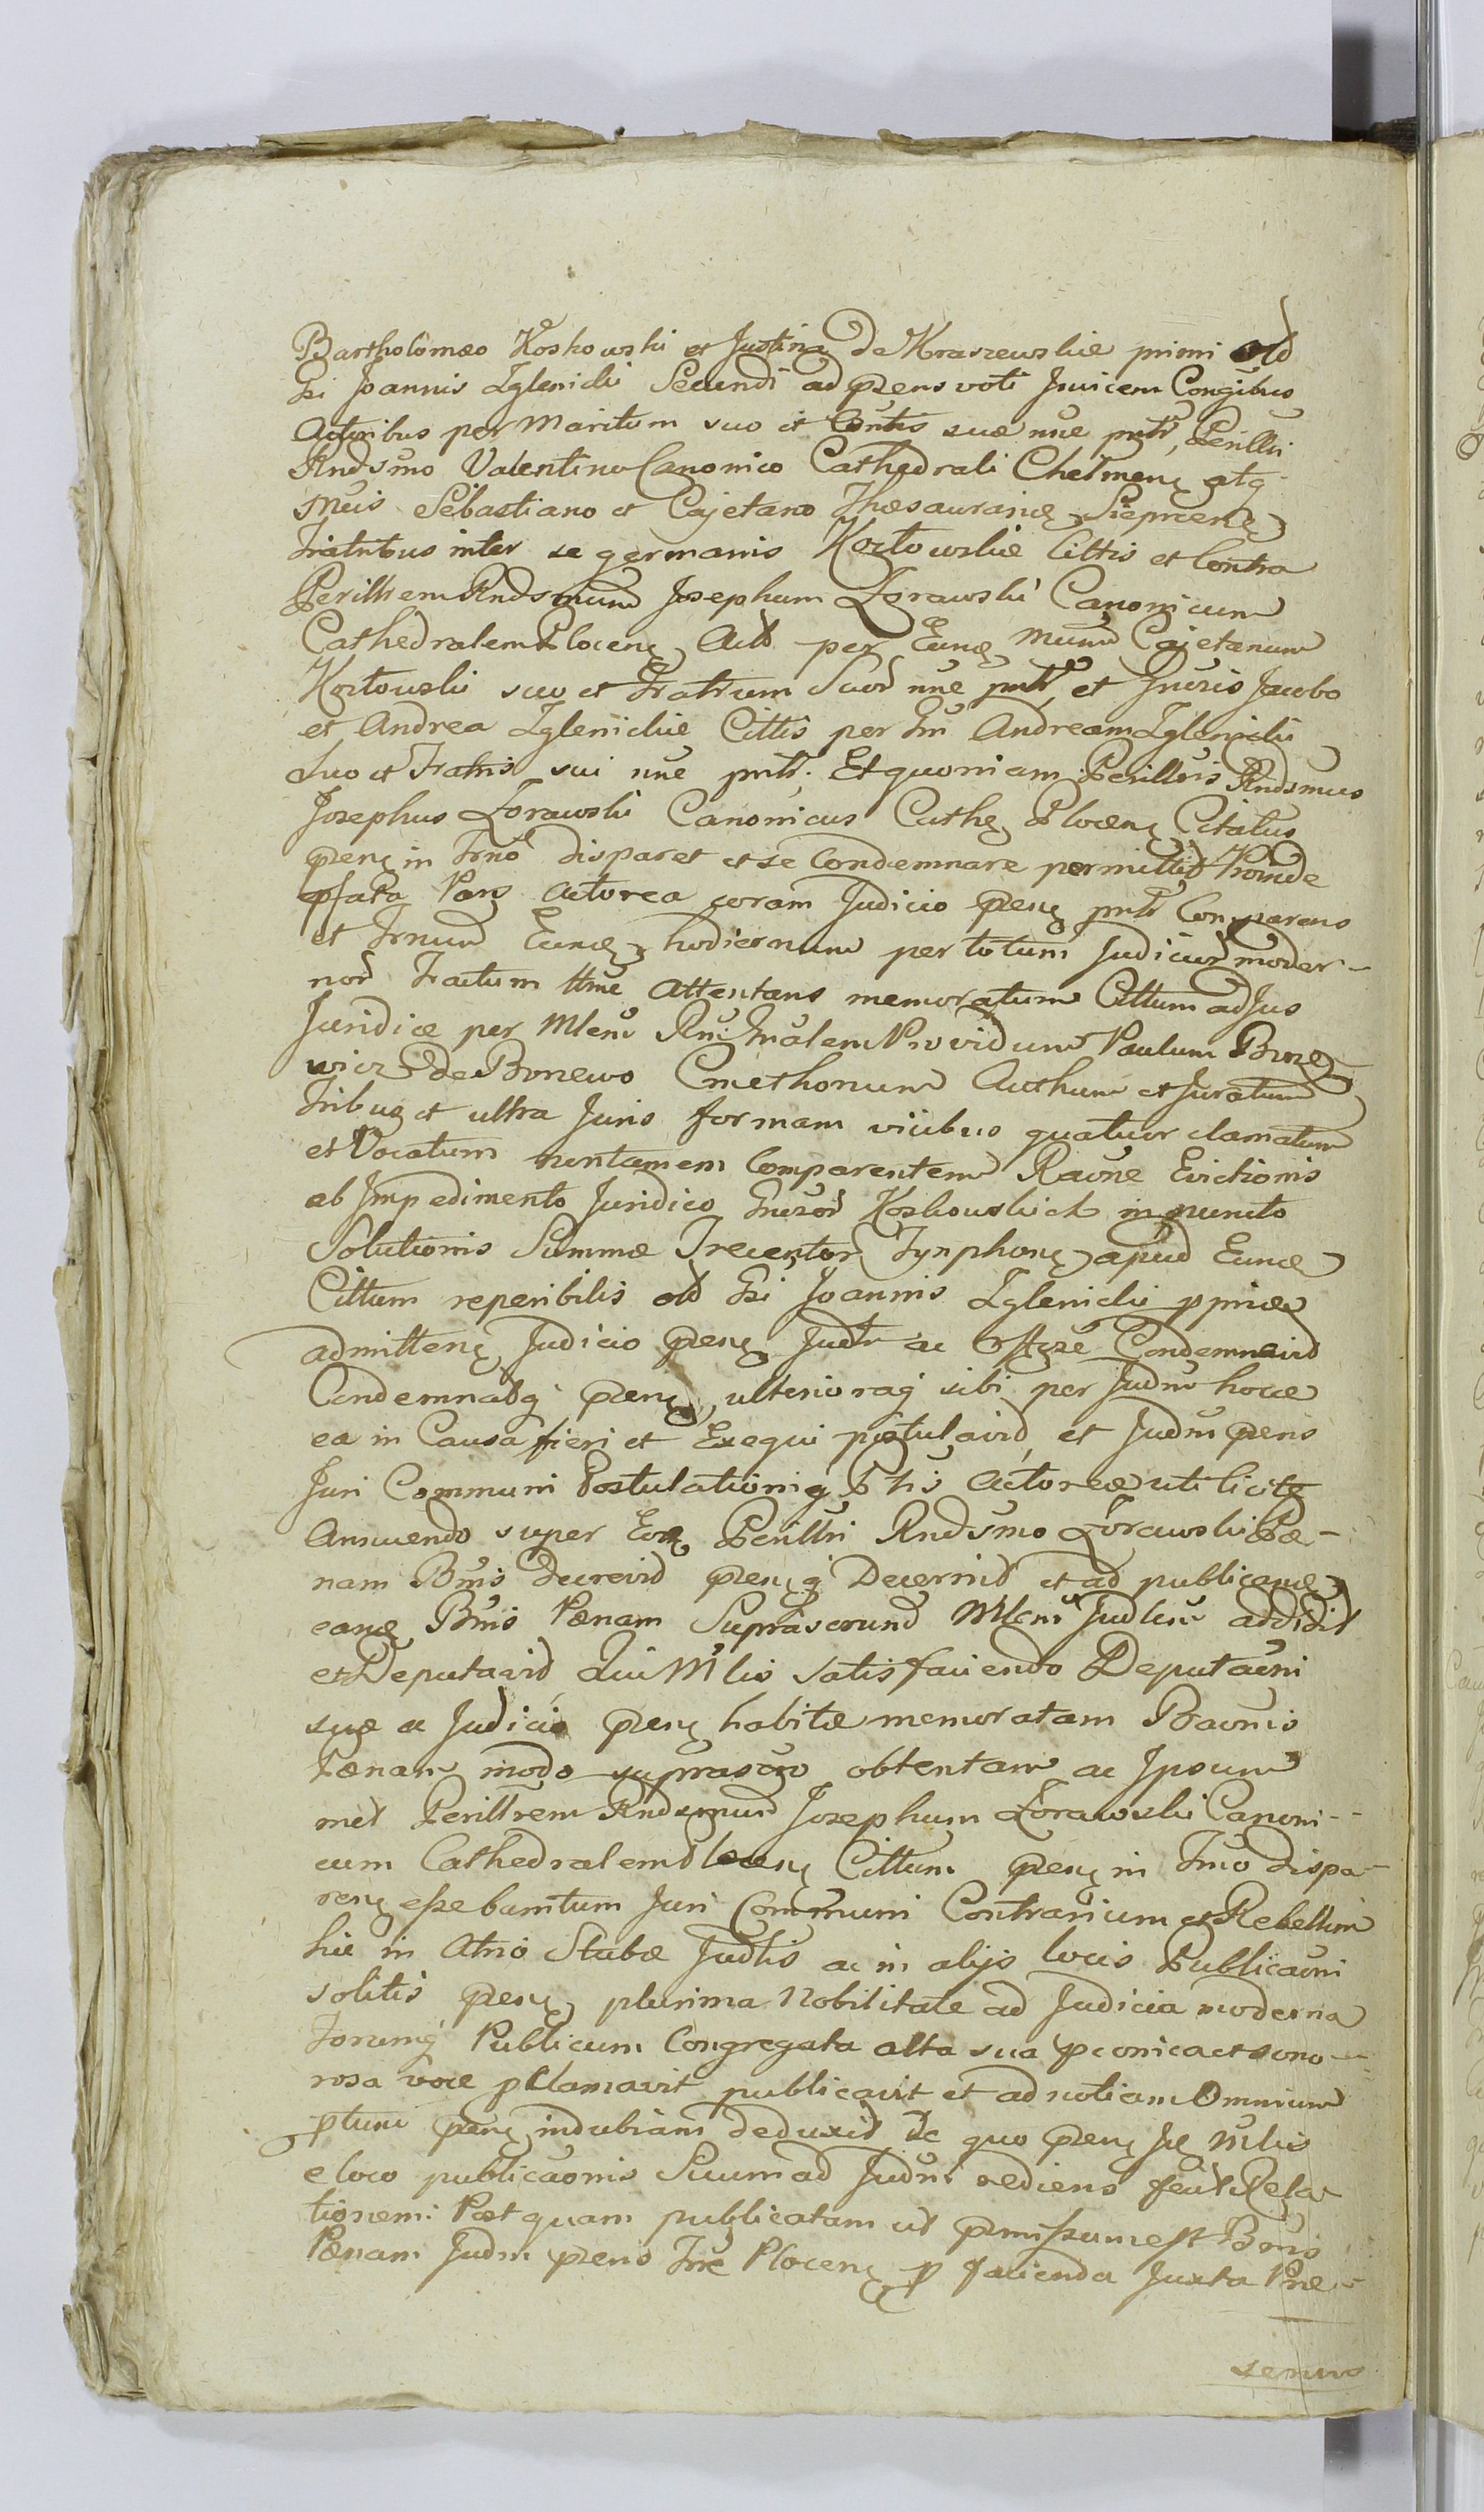 Bartholomæo Koskowski et Justina de Kraszewskie primi old
Gsi Joannis Zglenicki Secundi ad præns voti Invicem Conjgibus
Actoribus per Maritum suo et Contis suæ nñe pntr, Perilli
Rndsmo Valentino Canonico Cathedrali Chelmen atq
Mcis Sebastiano et Cajetano Thesaurario Sieprcen
Fratribus inter se germanis Koztowskie Cittis et Contra
Perillrem Rndsmum Josephum Zorawski Canonicum
Cathedralem Plocen Citt per Eund Mcum Cajetanum
Koztowski suo et Fratrum Suor nñe pntr et Gnrsis Jacobo
et Andrea Zglenickie Cittis per Gm Andream Zglenicki
Suo et Fratris sui nñe pntr. Et quoniam Perillris Rndsmus
Josephus Zorawski Canonicus Cathe Plocen Citatus
præn in Trno disparet et se Condemnare permittid Proinde
pfata Pars Actorea coram Judicio præn pntr Comparens
et Trnum Eund hodiernum per totum Judicior moder-
nor Tractum ttme Attentans memoratum Cittum ad Jus
Juridice per Mlem Rni Gnalem Providum Paulum Bone
wicz de Bonewo Cmethonum Authum et Juratum
Tribus et ultra Juris formam vicibus quatuor clamatum
et Vocatum nontamem Comparentem Raone Evictionis
ab Impedimento Juridico Gnrsor Koskowskich in puncto
Solutionis Summæ Trecentor Tynphon apud Eund
Cittum reperibilis old Gsi Joannis Zglenicki pmiæ
admitten Judicio præn Judr ac Condemnavid
Condemnatq præn, ulterioraq sibi per Judm hocce
ea in Causa fieri et Exequi postulavid, et Judm præns
Juri Communi Postulationiq Ptis Actoreæ uti licite
Annuendo super Eod Perillri Rndsmo Zorawski Pæ-
nam Bnis decrevid prænq Decernid et ad publicand
eand Bnis Pænam Suprascrund Mlem Judlem addidit
et Deputavid Qui Mlis satisfaciendo Deputaoni
suæ a Judicio præn habitæ memoratam Baonis
Pænam modo suprascro obtentam ac Ipsum
met Perillrem Rndsmum Josephum Zorawski Canoni-
cum Cathedralem Plocen Cittum præn in Trno dispa-
ren esse banitum Juri Communi Contrarium et Rebellem
hic in Atrio Stubæ Judlis ac in alijs locis Publicaoni
solitis præn plurima Nobilitate ad Judicia moderna
Forumq Publicum Congregata alta sua pconica et sono-
rosa voce pclamavit publicavit et ad notiam Omnium
ptum præn indubiam deduxid De quo præn Je Mlis
e loco publicaonis Suum ad Judm rediens fecit Rela-
tionem: Post quam publicatam ut præmissum est Bnis
Pænam Judm præns Trre Plocen p facienda Juxta Præ-
sens